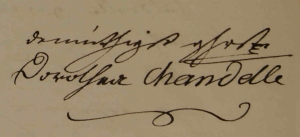 demüthigst gehorst
Dorothea Chandelle